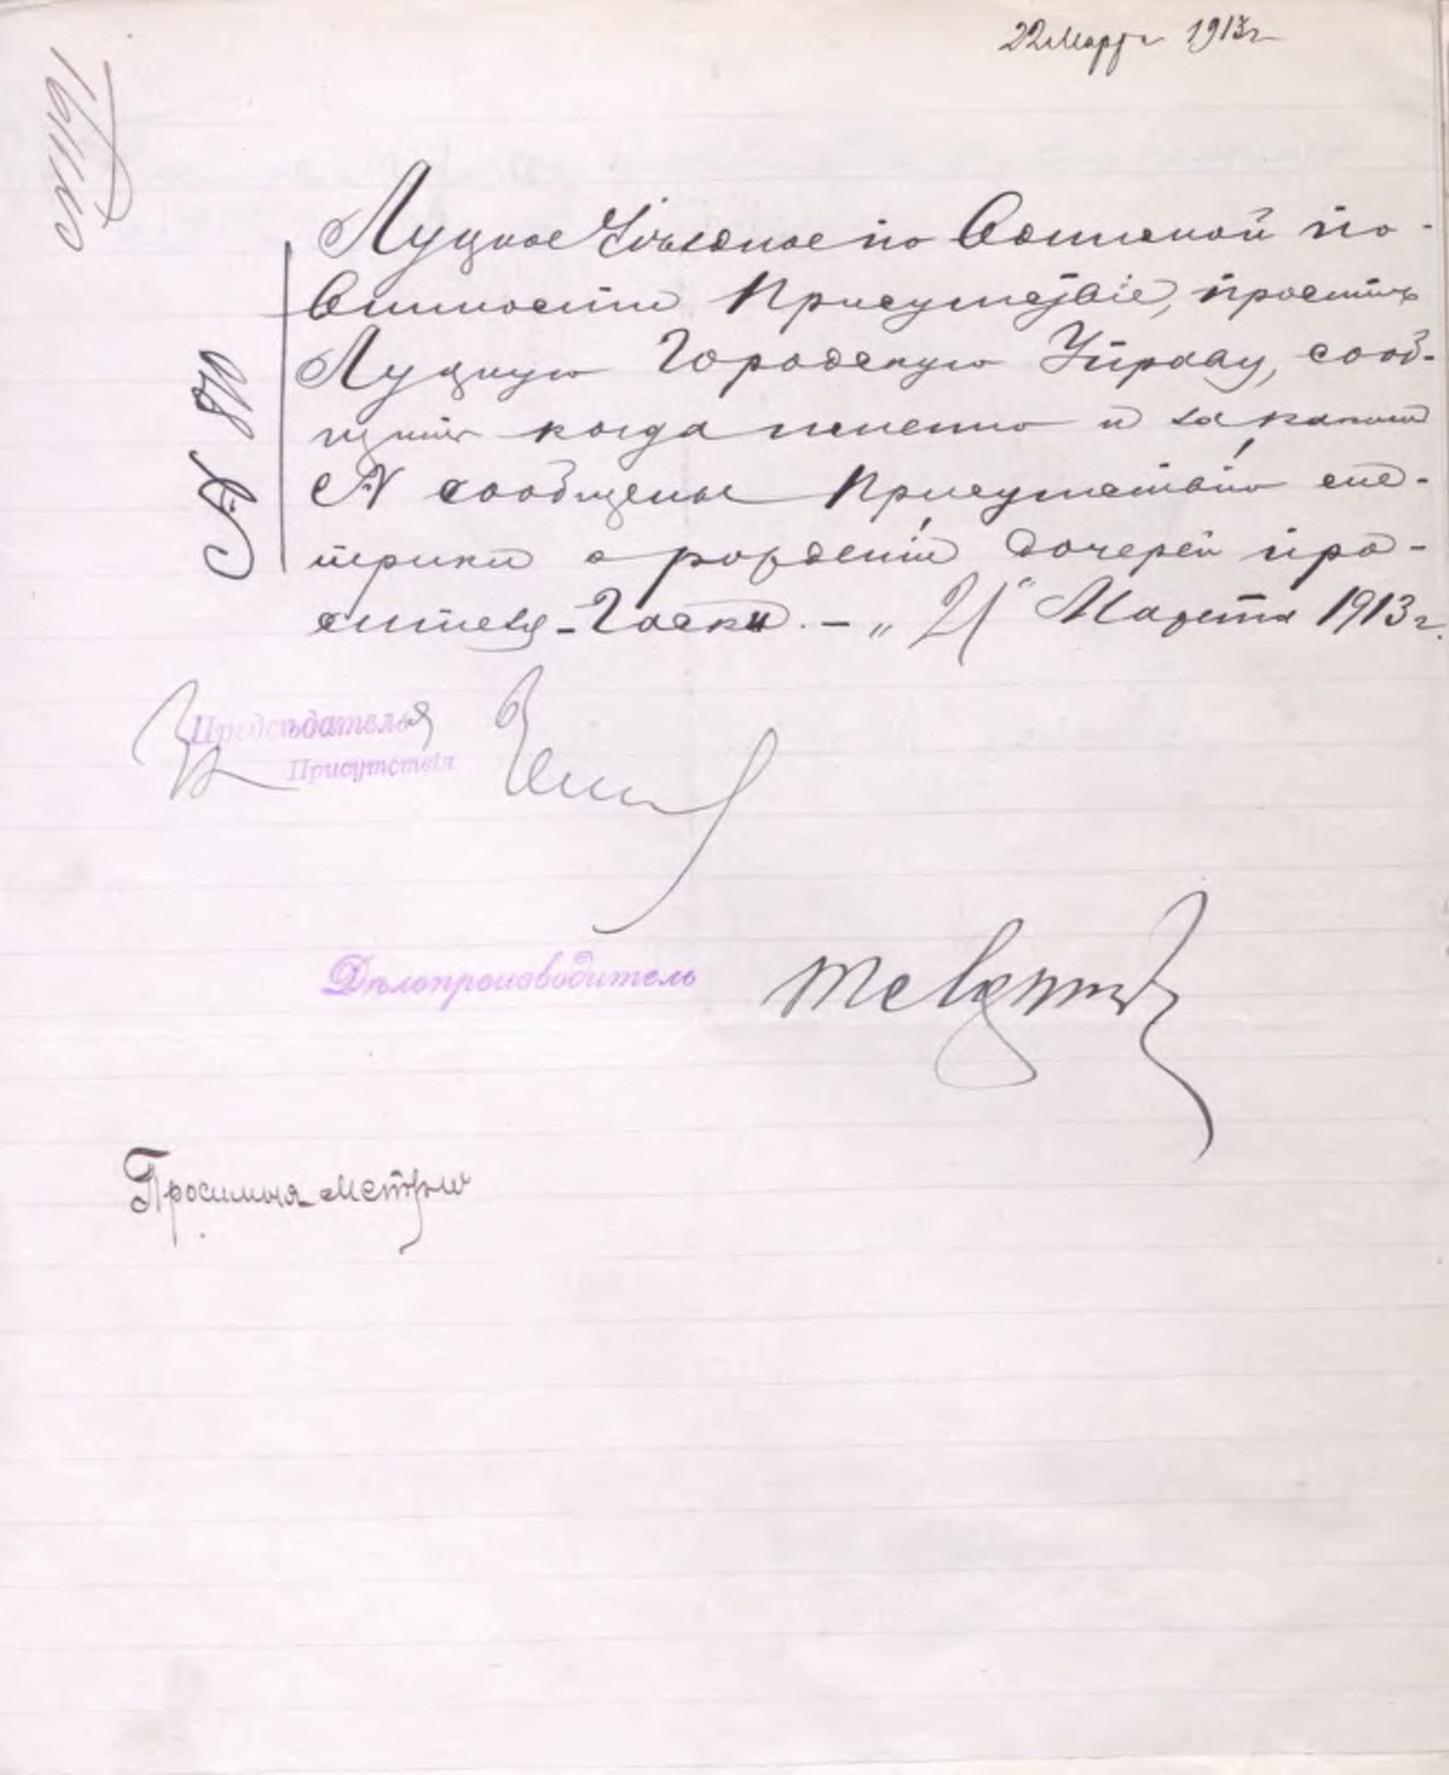 22 Марта 1913 г
№ 1191
№ 870
Луцкое Уѣздное по Воинской по-
винности Присутствіе, проситъ
Луцкую Городскую Управу, сооб-
щить когда именно и за какимъ
№ сообщены Присутствію ме-
трики о рожденіи дочерей про-
сителя - Гаски. - „21" Марта 1913 г.
За Предсѣдателя
Присутствія
Дѣлопроизводитель
Просимыя метрики